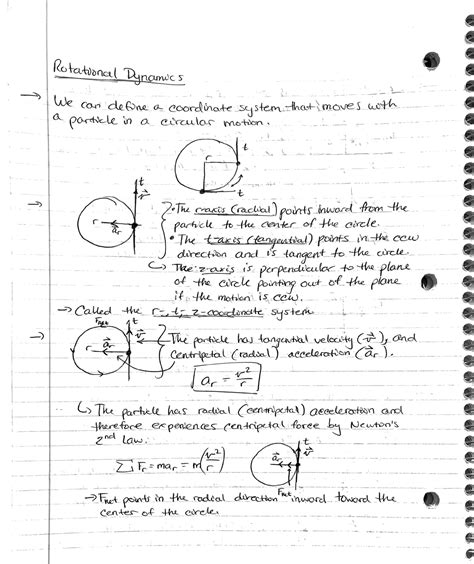 Rotational Dynamics
→ We can define a coordinate system that moves with
a particle in a circular motion.
t
r
t
t
v⃗
→ r a⃗r
• The r-axis (radial) points inward from the
particle to the center of the circle.
• The t-axis (tangential) points in the ccw
direction and is tangent to the circle.
↳ The z-axis is perpendicular to the plane
of the circle pointing out of the plane
if the motion is ccw.
→ Called the r-t-z-coordinate system
Fnet t
v⃗
r a⃗r
→ The particle has tangential velocity (v⃗), and
centripetal (radial) acceleration (a⃗r).
ar = v²/r
↳ The particle has radial (centripetal) acceleration and
therefore experiences centripetal force by Newton's
2nd law.
∑Fr = mar = m(v²/r)
t
v⃗
a⃗r
Fnet
→ Fnet points in the radial direction inward toward the
center of the circle.